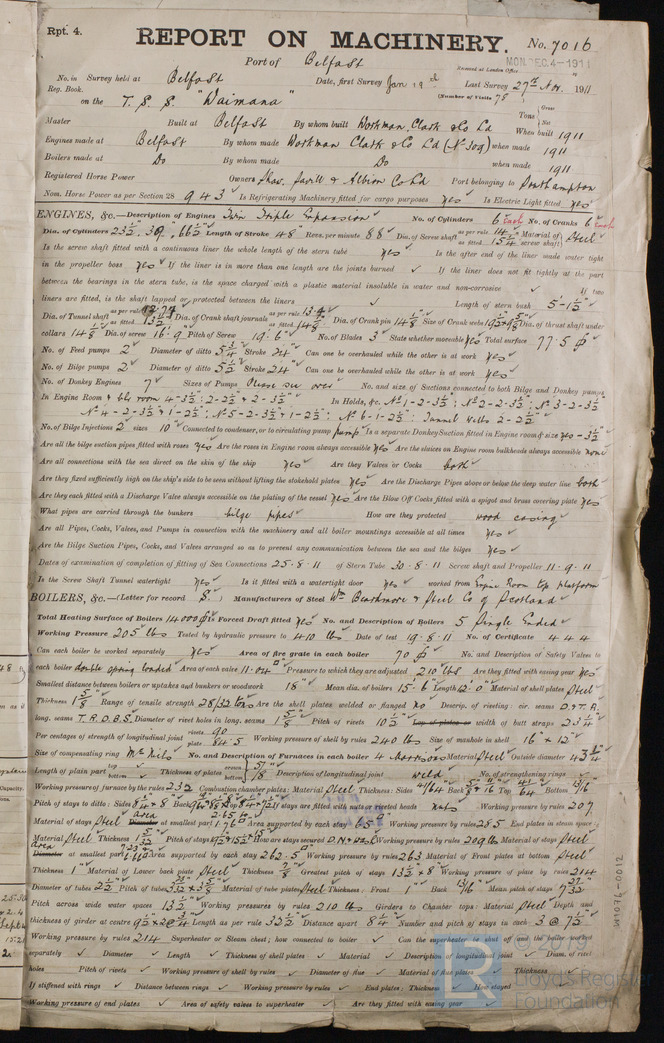 Rpt. 4.
REPORT ON MACHINERY. No. 7016
Port of Belfast
Received at London Office MON. DEC. 4 - 1911
No. in Reg. Book. Survey held at Belfast Date, first Survey Jan 19th Last Survey 27th Nov. 1911
(Number of Visits 78)
on the T. S. S. "Waimana" Tons Gross Net
Master Built at Belfast By whom built Workman Clark & Co Ld When built 1911
Engines made at Belfast By whom made Workman Clark & Co Ld (No 309) when made 1911
Boilers made at Do By whom made Do when made 1911
Registered Horse Power Owners Shaw, Savill & Albion Co Ld Port belonging to Southampton
Nom. Horse Power as per Section 28 943 Is Refrigerating Machinery fitted for cargo purposes Yes Is Electric Light fitted Yes
ENGINES, &c.—Description of Engines Twin Triple Expansion No. of Cylinders 6 Each No. of Cranks 6 Each
Dia. of Cylinders 23½, 39, 66½ Length of Stroke 48" Revs. per minute 88 Dia. of Screw shaft as per rule as fitted 15¼ Material of screw shaft Steel
Is the screw shaft fitted with a continuous liner the whole length of the stern tube Yes Is the after end of the liner made water tight
in the propeller boss Yes If the liner is in more than one length are the joints burned If the liner does not fit tightly at the part
between the bearings in the stern tube, is the space charged with a plastic material insoluble in water and non-corrosive If two
liners are fitted, is the shaft lapped or protected between the liners Length of stern bush 5'-1½"
Dia. of Tunnel shaft as per rule as fitted 13½ Dia. of Crank shaft journals as per rule 13.9 as fitted 14⅛ Dia. of Crank pin 14⅛ Size of Crank webs Dia. of thrust shaft under
collars 14⅛ Dia. of screw 16'-9" Pitch of Screw 19'-6" No. of Blades 3 State whether moveable Yes Total surface 77.5
No. of Feed pumps 2 Diameter of ditto Stroke 24" Can one be overhauled while the other is at work Yes
No. of Bilge pumps 2 Diameter of ditto 5½ Stroke 24" Can one be overhauled while the other is at work Yes
No. of Donkey Engines 7 Sizes of Pumps Please see over No. and size of Suctions connected to both Bilge and Donkey pumps
In Engine Room & blr room 4-3½"; 2-2½" & 2-3½" In Holds, &c. No 1-2-3½"; No 2-2-3½"; No 3-2-3½
No 4-2-3½ & 1-2½"; No 5-2-3½ & 1-2½"; No 6-1-2½" Tunnel wells 2-2½"
No. of Bilge Injections 2 sizes 10" Connected to condenser, or to circulating pump pump Is a separate Donkey Suction fitted in Engine room & size yes - 3½"
Are all the bilge suction pipes fitted with roses Yes Are the roses in Engine room always accessible Yes Are the sluices on Engine room bulkheads always accessible none
Are all connections with the sea direct on the skin of the ship Yes Are they Valves or Cocks both
Are they fixed sufficiently high on the ship's side to be seen without lifting the stokehold plates Yes Are the Discharge Pipes above or below the deep water line both
Are they each fitted with a Discharge Valve always accessible on the plating of the vessel Yes Are the Blow Off Cocks fitted with a spigot and brass covering plate Yes
What pipes are carried through the bunkers bilge pipes How are they protected wood casing
Are all Pipes, Cocks, Valves, and Pumps in connection with the machinery and all boiler mountings accessible at all times Yes
Are the Bilge Suction Pipes, Cocks, and Valves arranged so as to prevent any communication between the sea and the bilges Yes
Dates of examination of completion of fitting of Sea Connections 25.8.11 of Stern Tube 30.8.11 Screw shaft and Propeller 11.9.11
Is the Screw Shaft Tunnel watertight Yes Is it fitted with a watertight door Yes worked from Engine Room top platform
BOILERS, &c.—(Letter for record S.) Manufacturers of Steel Wm Beardmore & Steel Co of Scotland
Total Heating Surface of Boilers 14000 Is Forced Draft fitted Yes No. and Description of Boilers 5 Single Ended
Working Pressure 205 lbs Tested by hydraulic pressure to 410 lbs Date of test 19.8.11 No. of Certificate 444
Can each boiler be worked separately Yes Area of fire grate in each boiler 70 No. and Description of Safety Valves to
each boiler double spring loaded Area of each valve 11.04 Pressure to which they are adjusted 210 lbs Are they fitted with easing gear Yes
Smallest distance between boilers or uptakes and bunkers or woodwork 18" Mean dia. of boilers 15'-6" Length 12'-0" Material of shell plates Steel
Thickness 1⅝ Range of tensile strength 28/32 tons Are the shell plates welded or flanged no Descrip. of riveting: cir. seams D.& T.R.
long. seams T.R.D.B.S. Diameter of rivet holes in long. seams 1⅝ Pitch of rivets 10½ Lap of plates or width of butt straps 23¼
Per centages of strength of longitudinal joint rivets 90 plate 84.5 Working pressure of shell by rules 240 lbs Size of manhole in shell 16" x 12"
Size of compensating ring McNeils No. and Description of Furnaces in each boiler 4 Morrisons Material Steel Outside diameter 43¼
Length of plain part top bottom Thickness of plates crown bottom Description of longitudinal joint weld No. of strengthening rings
Working pressure of furnace by the rules 232 Combustion chamber plates: Material Steel Thickness: Sides Back Top Bottom
Pitch of stays to ditto: Sides Back Top If stays are fitted with nuts or riveted heads nuts Working pressure by rules 207
Material of stays Steel area Diameter at smallest part Area supported by each stay Working pressure by rules 285 End plates in steam space:
Material Steel Thickness Pitch of stays How are stays secured Working pressure by rules 209 lbs Material of stays Steel
Area Diameter at smallest part Area supported by each stay 262.5 Working pressure by rules 263 Material of Front plates at bottom Steel
Thickness 1" Material of Lower back plate Steel Thickness ⅞ Greatest pitch of stays 13½ x 8 Working pressure of plate by rules 214
Diameter of tubes 2½ Pitch of tubes Material of tube plates Steel Thickness: Front 1" Back 13/16" Mean pitch of stays
Pitch across wide water spaces 13½ Working pressures by rules 210 lbs Girders to Chamber tops: Material Steel Depth and
thickness of girder at centre Length as per rule 32½ Distance apart 8¼ Number and pitch of stays in each 3 @ 7½"
Working pressure by rules 214 Superheater or Steam chest; how connected to boiler Can the superheater be shut off and the boiler worked
separately Diameter Length Thickness of shell plates Material Description of longitudinal joint Diam. of rivet
holes Pitch of rivets Working pressure of shell by rules Diameter of flue Material of flue plates Thickness
If stiffened with rings Distance between rings Working pressure by rules End plates: Thickness How stayed
Working pressure of end plates Area of safety valves to superheater Are they fitted with easing gear
W1074-0012
© 2020
Lloyd's Register
Foundation